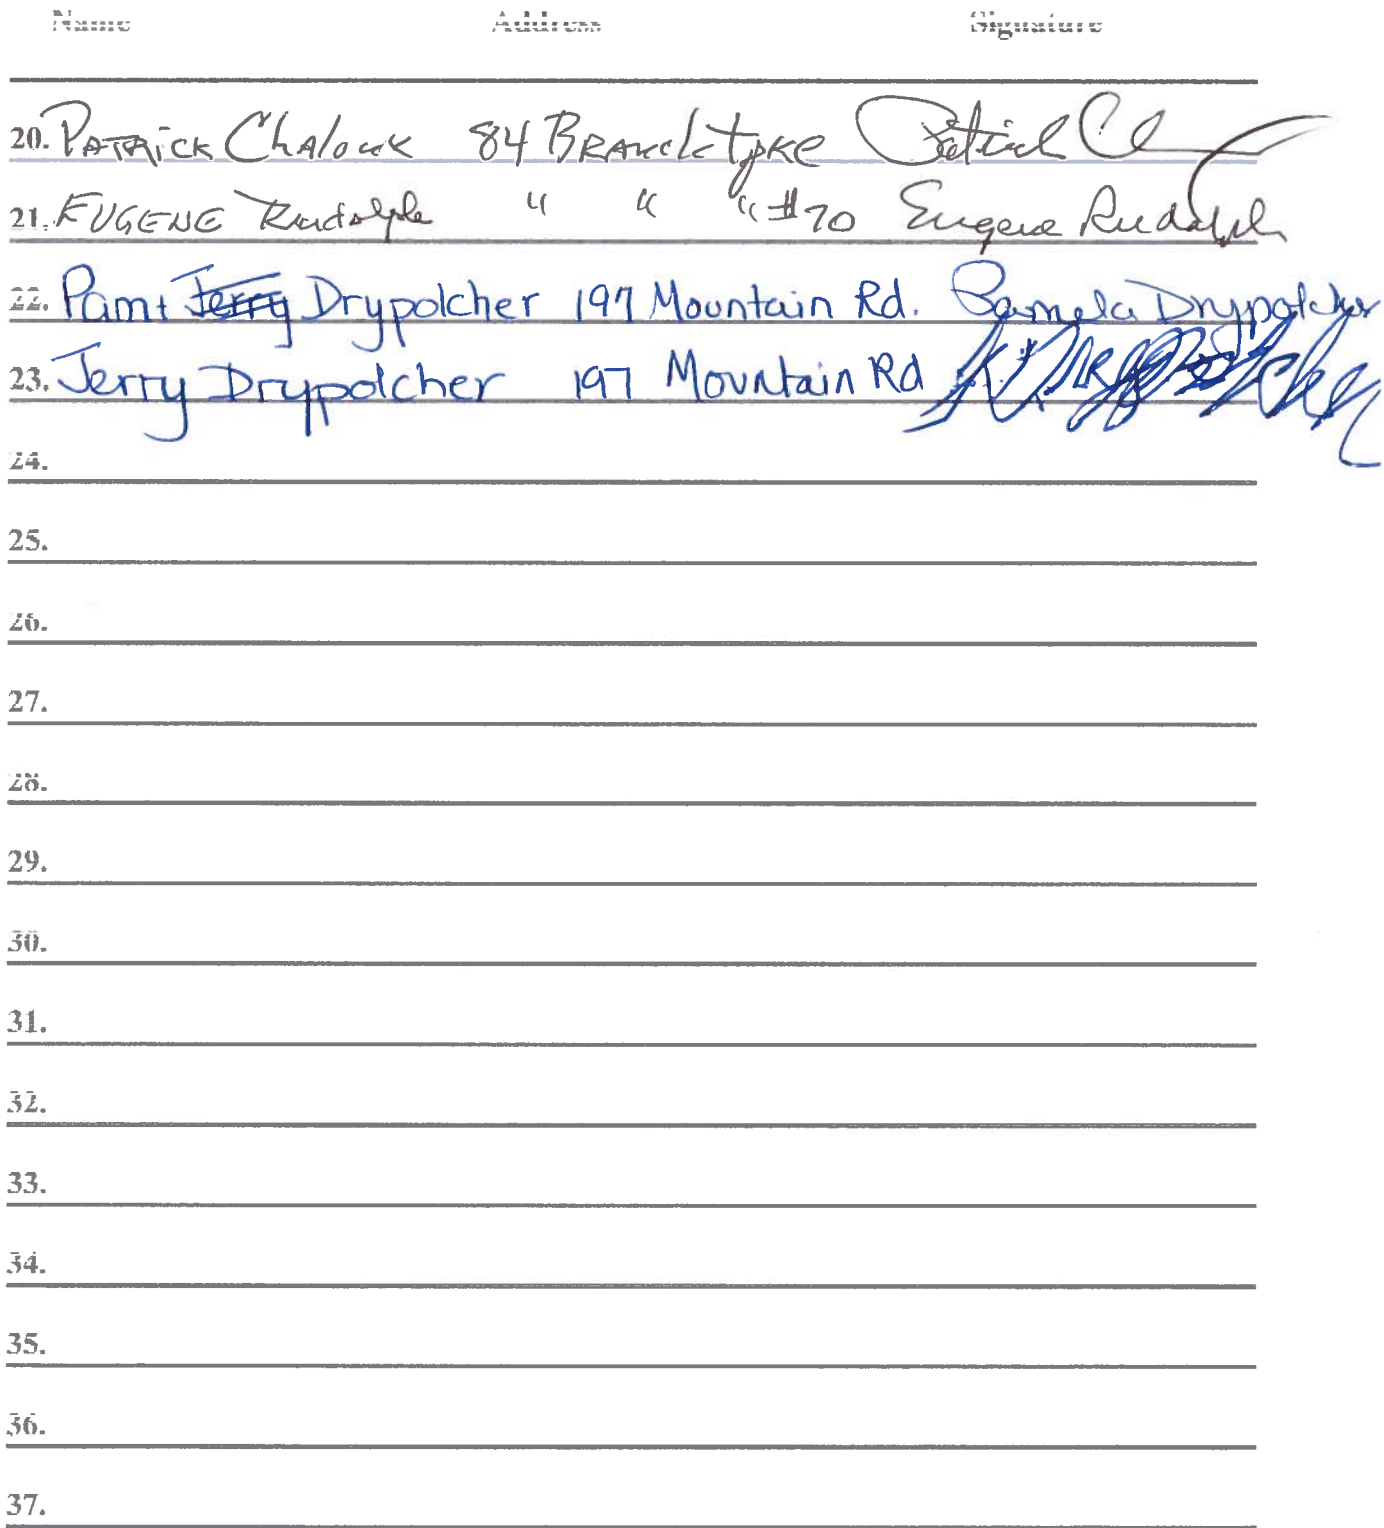 Name Address Signature
20. PATRICK Chalouk 84 BRANCh tpKe Patrick
21. EUGENE Rudolph " " " #70 Eugene Rudolph
22. Pam + Jerry Drypolcher 197 Mountain Rd. Pamela Drypolcher
23. Jerry Drypolcher 197 Mountain Rd
24.
25.
26.
27.
28.
29.
30.
31.
32.
33.
34.
35.
36.
37.